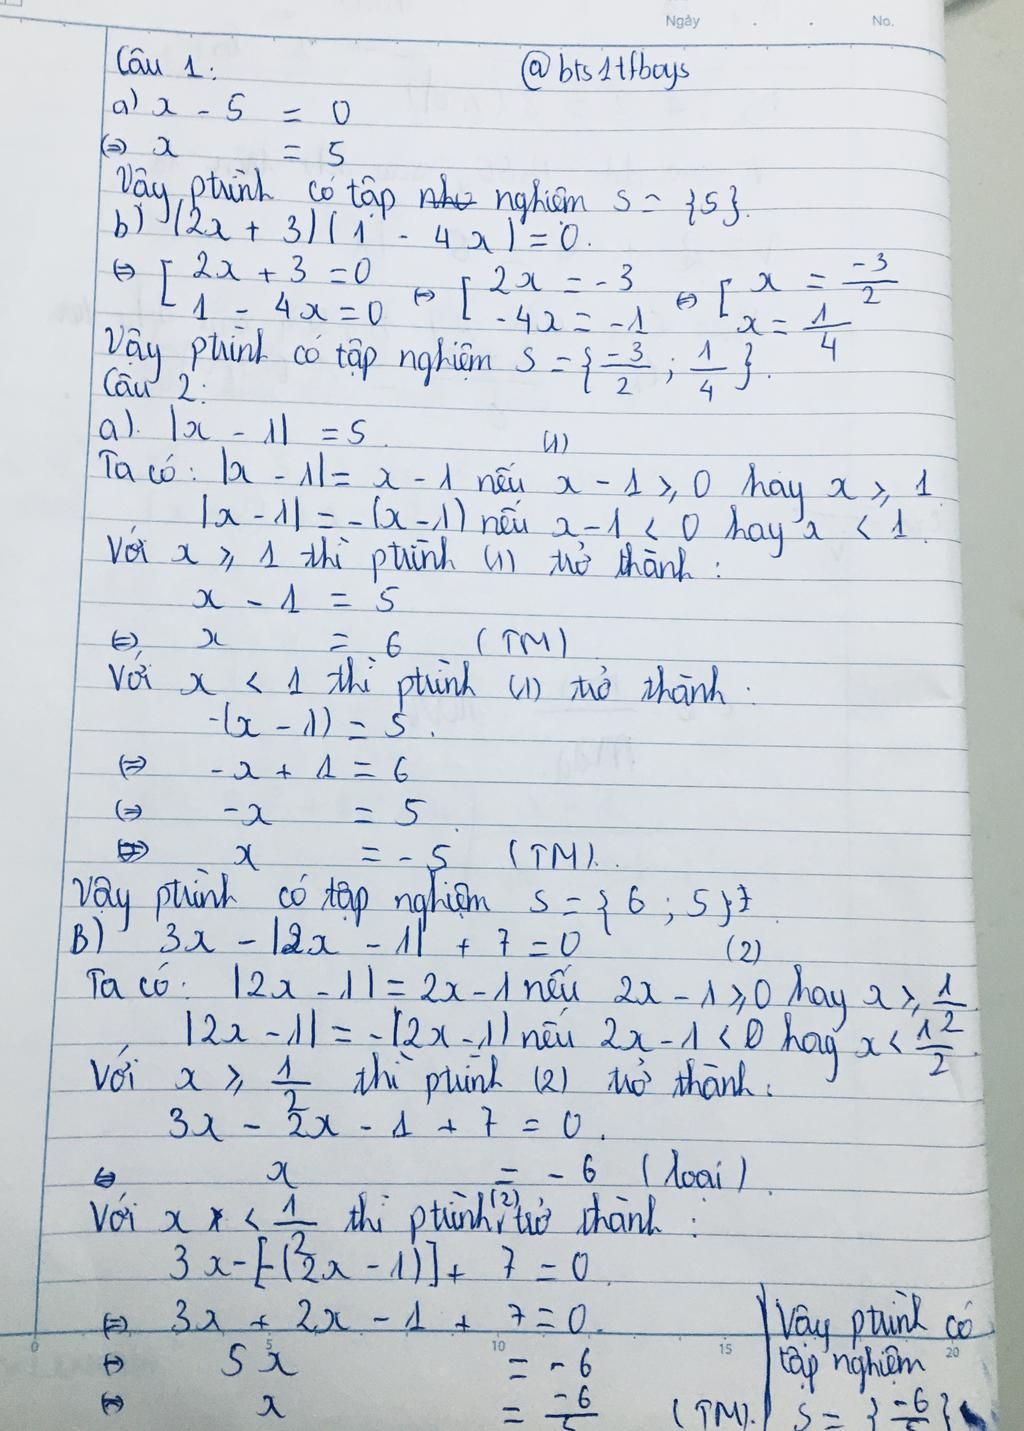 Ngày . . No.
Câu 1: @bts1tfboys
a) x - 5 = 0
⇔ x = 5
Vậy ptrình có tập nghiệm S = {5}.
b) (2x + 3)(1 - 4x) = 0.
⇔ [ 2x + 3 = 0 ⇔ [ 2x = -3 ⇔ [ x = -3/2
1 - 4x = 0 -4x = -1 x = 1/4
Vậy ptrình có tập nghiệm S = {-3/2 ; 1/4}.
Câu 2:
a) |x - 1| = 5. (1)
Ta có: |x - 1| = x - 1 nếu x - 1 ≥ 0 hay x ≥ 1
|x - 1| = -(x - 1) nếu x - 1 < 0 hay x < 1.
Với x ≥ 1 thì ptrình (1) trở thành:
x - 1 = 5
⇔ x = 6 (TM)
Với x < 1 thì ptrình (1) trở thành:
-(x - 1) = 5.
⇔ -x + 1 = 6
⇔ -x = 5
⇔ x = -5 (TM).
Vậy ptrình có tập nghiệm S = {6 ; 5}
B) 3x - |2x - 1| + 7 = 0 (2)
Ta có: |2x - 1| = 2x - 1 nếu 2x - 1 ≥ 0 hay x ≥ 1/2
|2x - 1| = -(2x - 1) nếu 2x - 1 < 0 hay x < 1/2.
Với x ≥ 1/2 thì ptrình (2) trở thành:
3x - 2x - 1 + 7 = 0.
⇔ x = -6 (loại).
Với x < 1/2 thì ptrình (2) trở thành:
3x - [-(2x - 1)] + 7 = 0
⇔ 3x + 2x - 1 + 7 = 0.
0 5 10 15 20
⇔ 5x = -6
⇔ x = -6/5 (TM).
Vậy ptrình có
tập nghiệm
S = {-6/5}